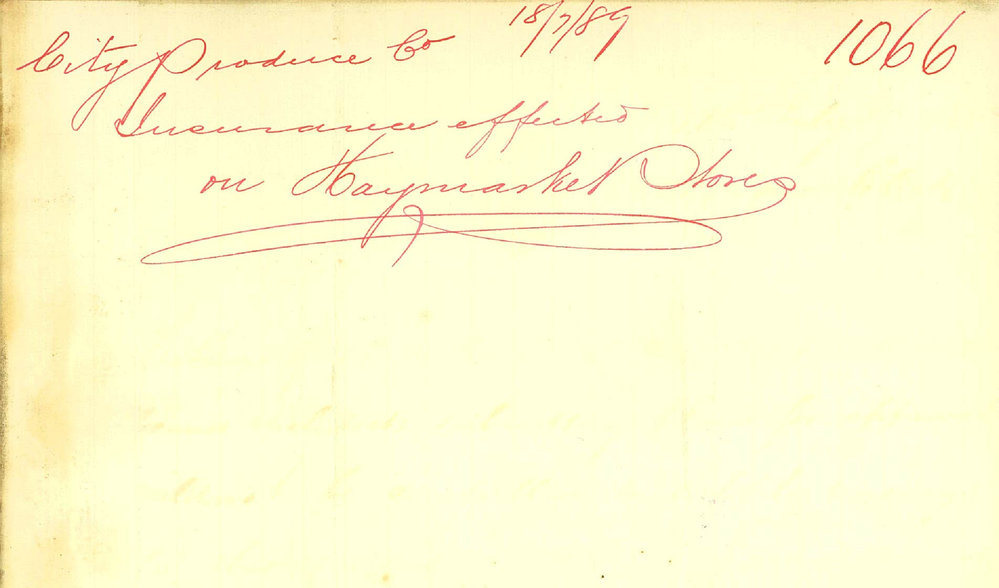 City Produce Co 18/7/89 1066
Insurance effected
on Haymarket Stores